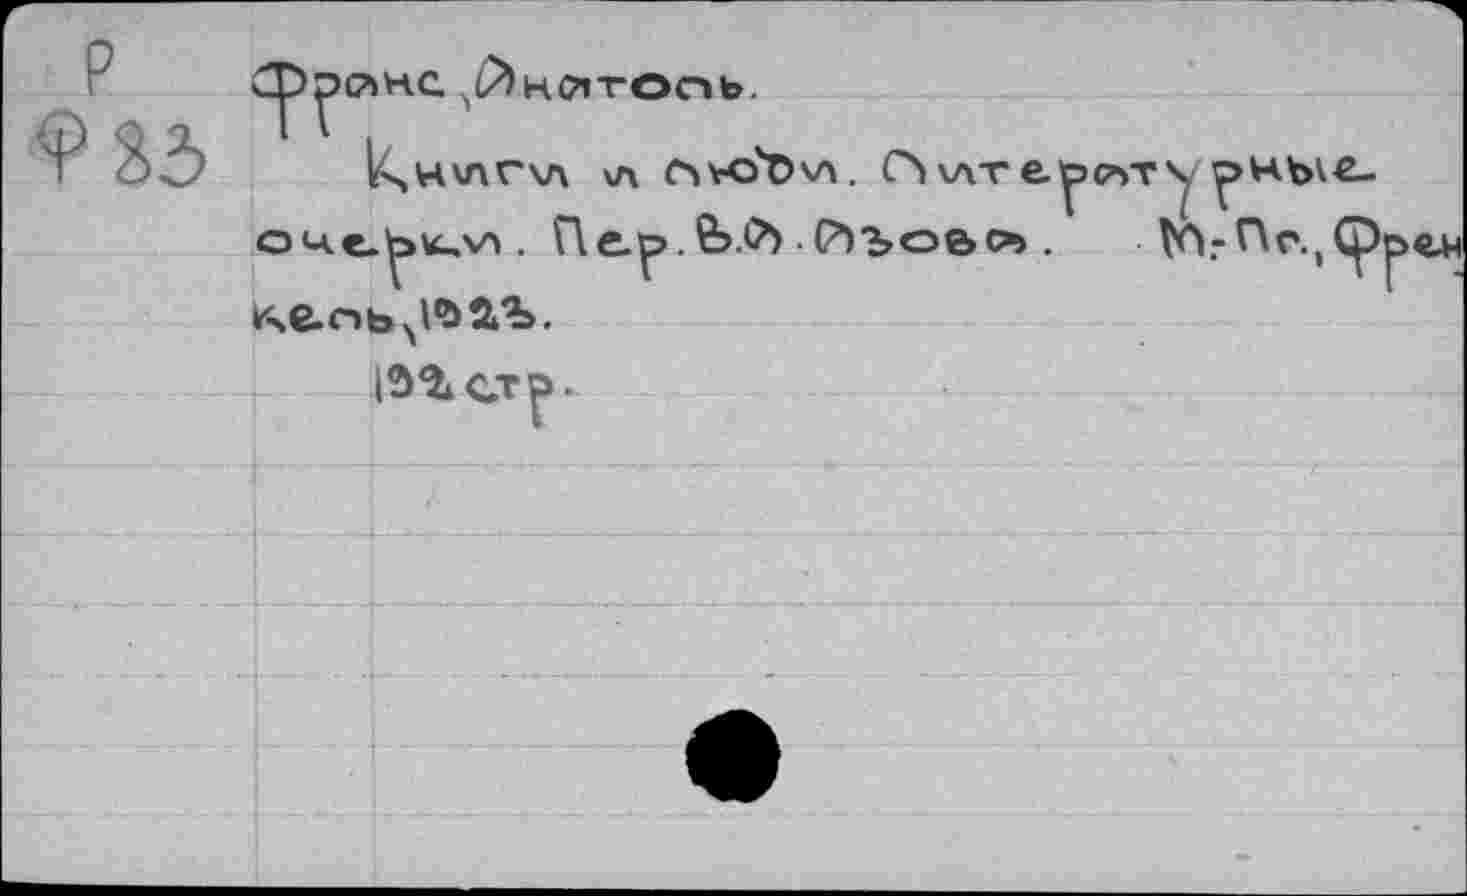 Р
Ф 83
Франс, Анатоль.
Книги и люди. Литературные
очерки. Пер. В.А. Азова. М.-Пг., Френ
кель, 1923.
192 стр.